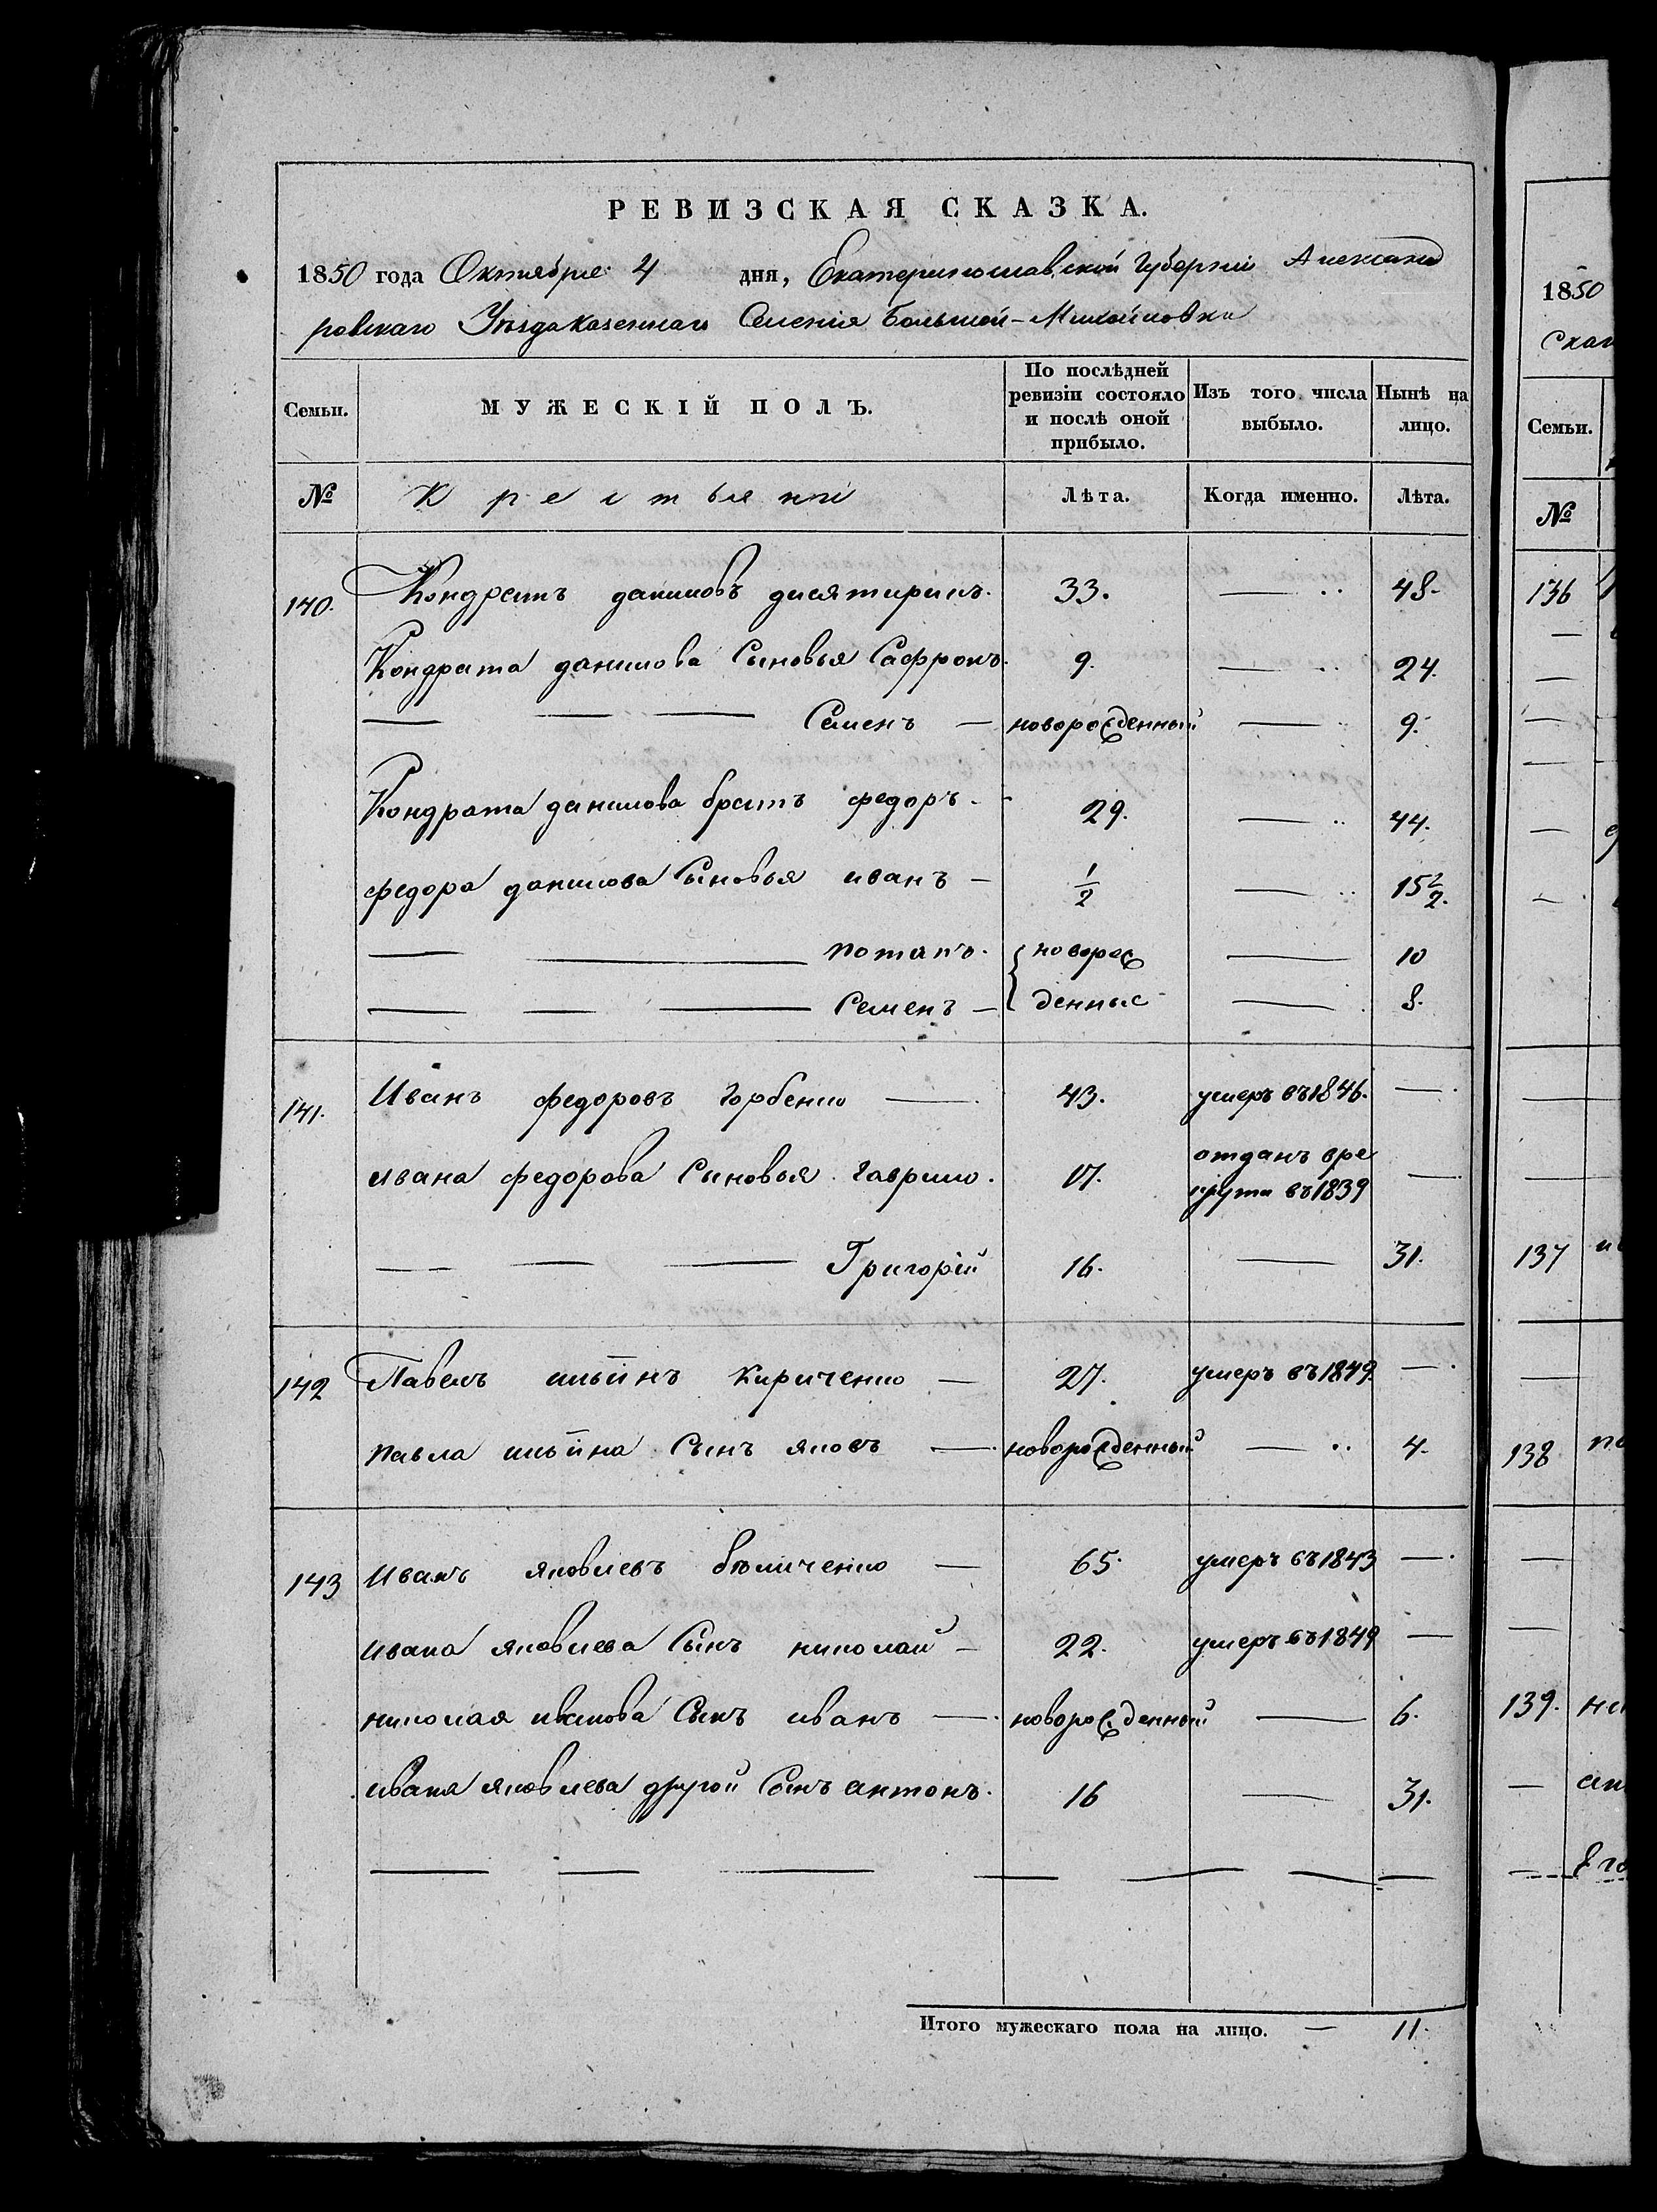 РЕВИЗСКАЯ СКАЗКА.
1850 года Октября 4 дня, Екатеринославской Губерніи Александ
ровскаго Уѣзда казеннаго Селенія Большой-Михайловки
Семьи. МУЖЕСКІЙ ПОЛЪ. По послѣдней ревизіи состояло и послѣ оной прибыло. Изъ того числа выбыло. Нынѣ на лицо.
№ Крестьяне Лѣта. Когда именно. Лѣта.
140. Кондратъ даниловъ дисятиринъ. 33. — 48.
Кондрата данилова Сыновья Сафронъ. 9. — 24.
— — — Семенъ — новорожденный — 9.
Кондрата данилова братъ федоръ. 29. — 44.
федора данилова Сыновья иванъ — 1/2 — 15 1/2.
— — потапъ. новорож — 10
— — — Семенъ — денные — 8.
141. Иванъ федоровъ Горбенко — 43. умеръ въ 1846. —
ивана федорова Сыновья Гаврило. 17. отданъ вре —
круты въ 1839
— — — Григорій 16. — 31.
142 Павелъ ильинъ Кириченко — 27. умеръ въ 1849. —
павла ильина Сынъ яковъ — новорожденный — 4.
143 Иванъ яковлевъ бѣличенко — 65. умеръ въ 1843 —
ивана яковлева Сынъ николай — 22. умеръ въ 1849 —
николая иванова Сынъ иванъ — новорожденный — 6.
ивана яковлева другой Сынъ антонъ. 16 — 31.
Итого мужескаго пола на лицо. — 11.
1850
Семьи.
№
136
137
138
139.